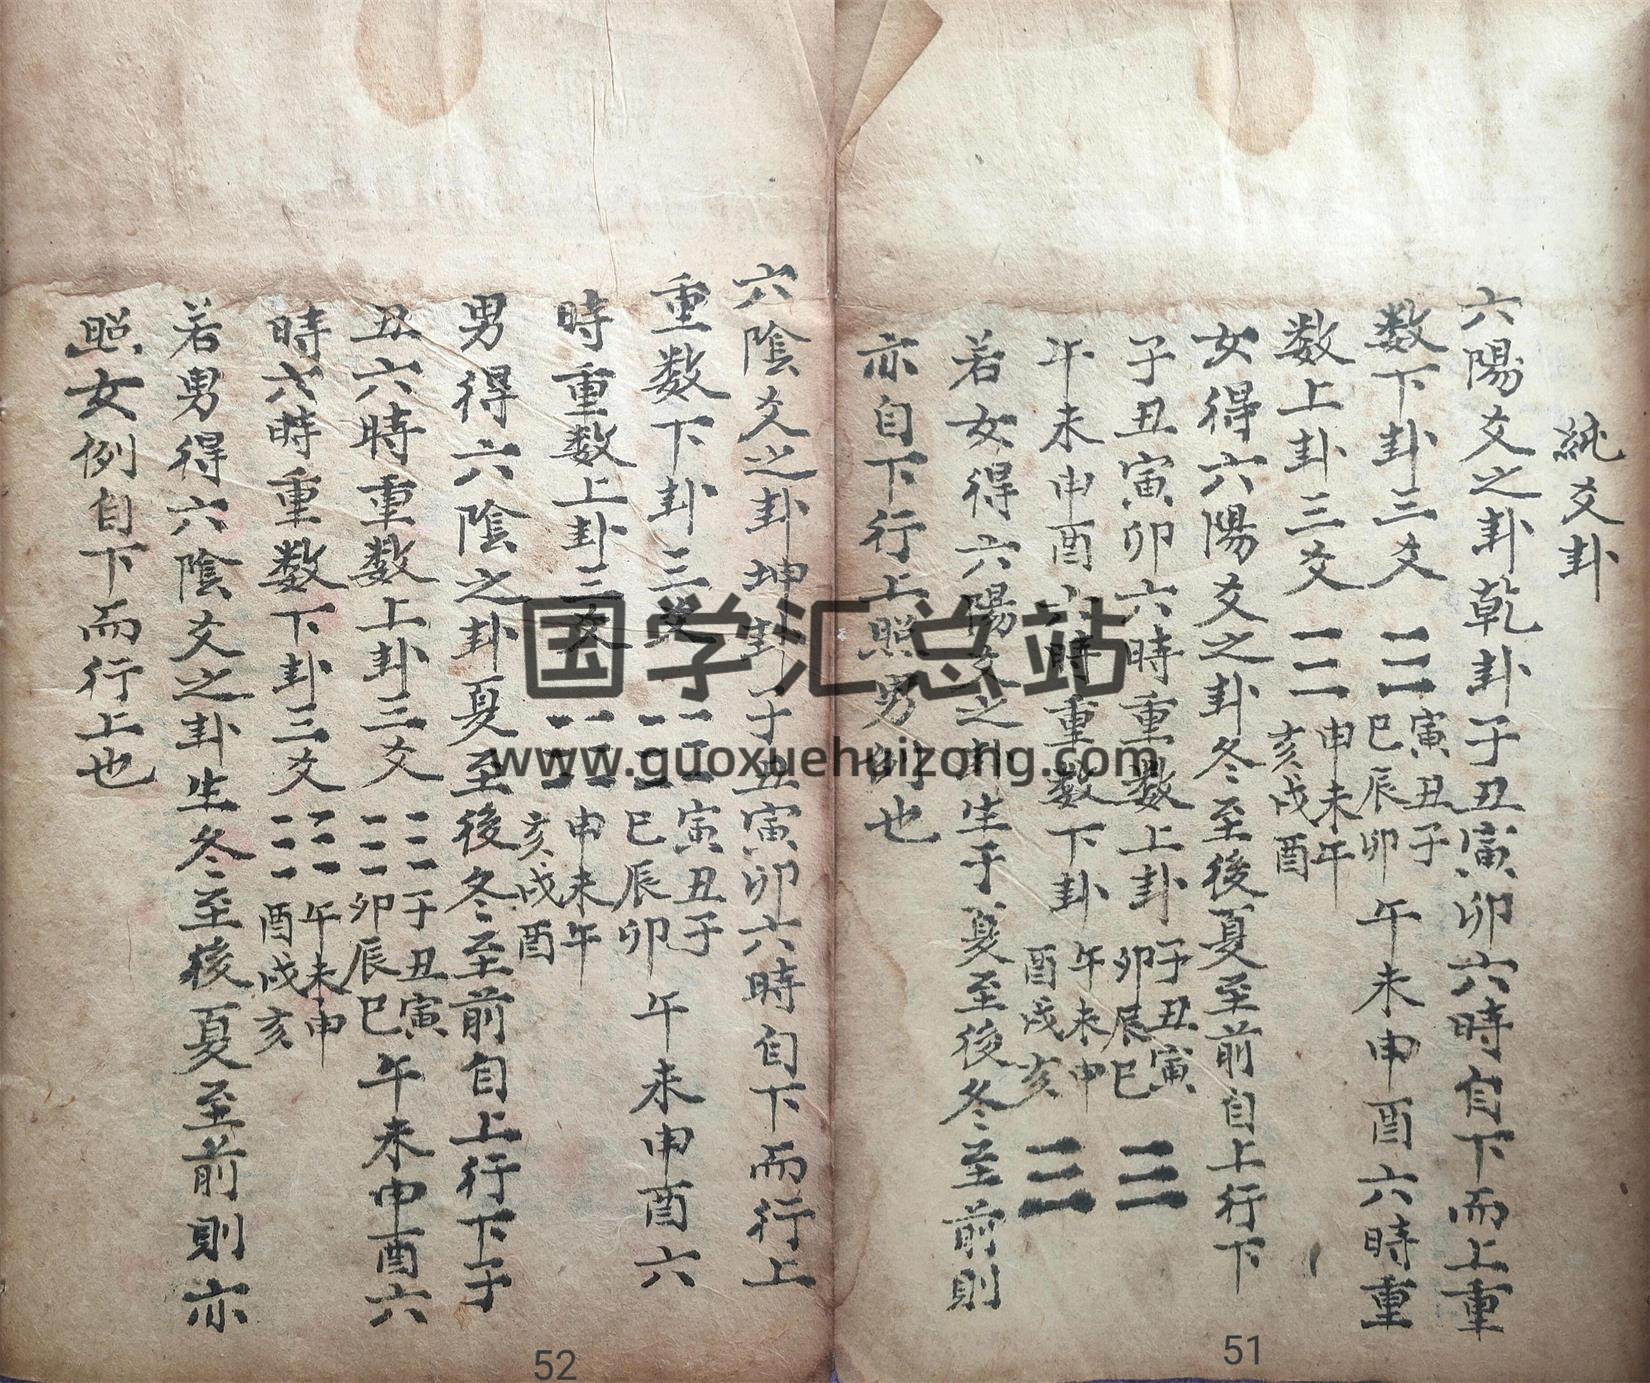 純爻卦
六陽爻之卦乾卦子丑寅卯六時自下而上重
数下卦三爻 寅丑子 巳辰卯 午未申酉六時重
数上卦三爻 申未午 亥戌酉
女得六陽爻之卦冬至後夏至前自上行下
子丑寅卯六時重数上卦 子丑寅 卯辰巳 ☰
午未申酉六時重数下卦 午未申 酉戌亥 ☰
若女得六陽爻之卦生于夏至後冬至前則
亦自下行上照男例也
51
六陰爻之卦坤卦子丑寅卯六時自下而行上
重数下卦三爻 寅丑子 巳辰卯 午未申酉六
時重数上卦三爻 申未午 亥戌酉
男得六陰之卦夏至後冬至前自上行下于
丑六時重数上卦三爻 子丑寅 卯辰巳 午未申酉六
時六時重数下卦三爻 午未申 酉戌亥
若男得六陰爻之卦生冬至後夏至前則亦
照女例自下而行上也
52
国学汇总站
www.guoxuehuizong.com